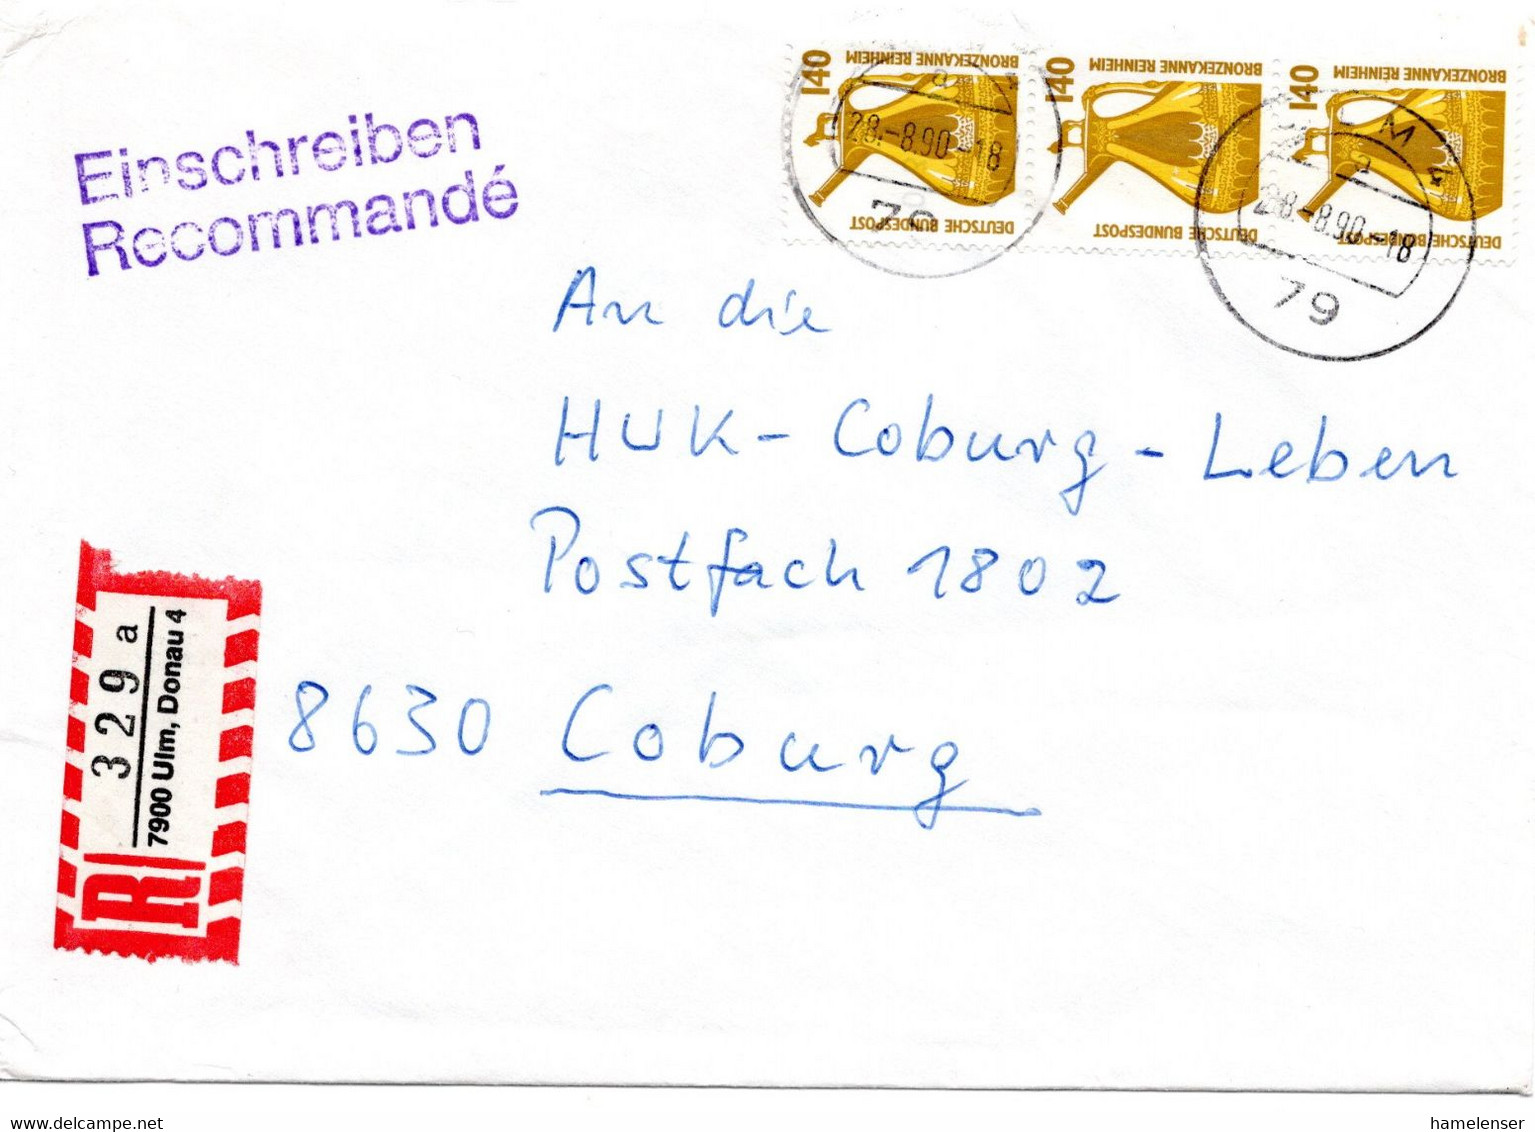 Einschreiben
Recommandé
140 BRONZEKANNE REINHEIM DEUTSCHE BUNDESPOST
140 BRONZEKANNE REINHEIM DEUTSCHE BUNDESPOST
140 BRONZEKANNE REINHEIM DEUTSCHE BUNDESPOST
a
28.-8.90-18
79
ULM 4
a
28.-8.90-18
79
An die
HUK-Coburg-Leben
Postfach 1802
8630 Coburg
R
329 a
7900 Ulm, Donau 4
hamelenser